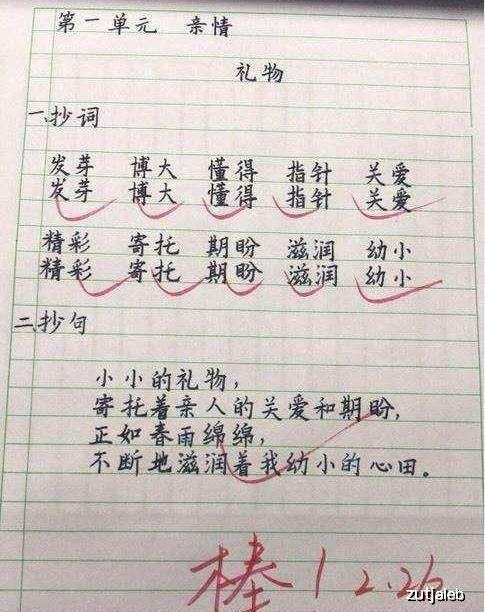 第一单元 亲情
礼物
一、抄词
发芽 博大 懂得 指针 关爱
发芽 博大 懂得 指针 关爱
精彩 寄托 期盼 滋润 幼小
精彩 寄托 期盼 滋润 幼小
二、抄句
小小的礼物，
寄托着亲人的关爱和期盼，
正如春雨绵绵，
不断地滋润着我幼小的心田。
棒! 2.26
zutjaleb